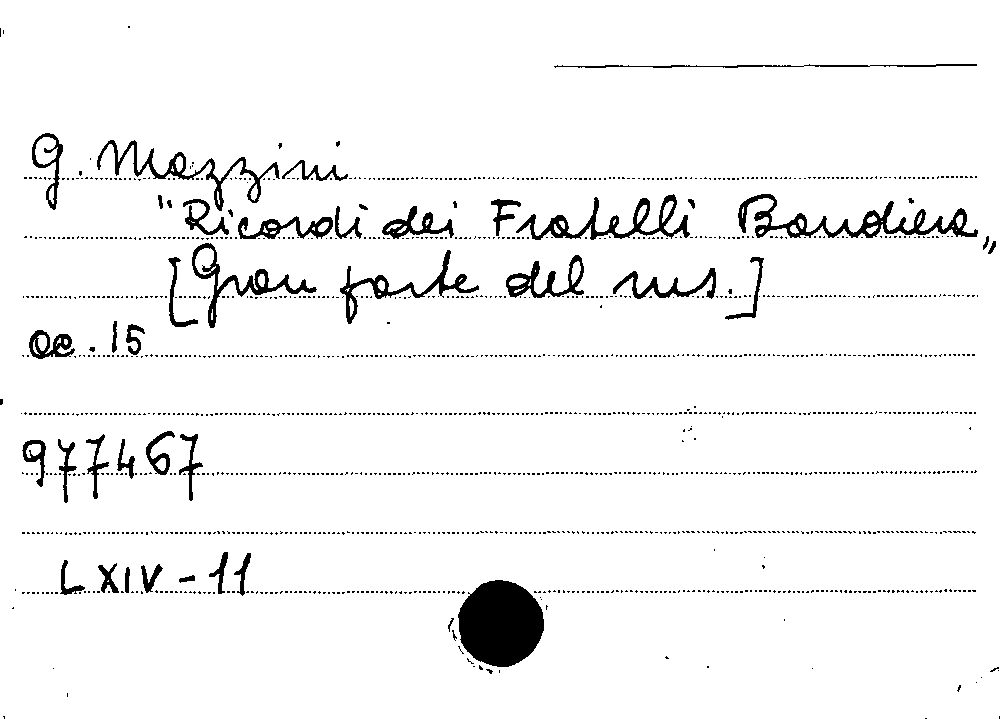 G. Mazzini
"Ricordi dei Fratelli Bandiera„
[Gran parte del ms.]
cc. 15
977467
LXIV - 11